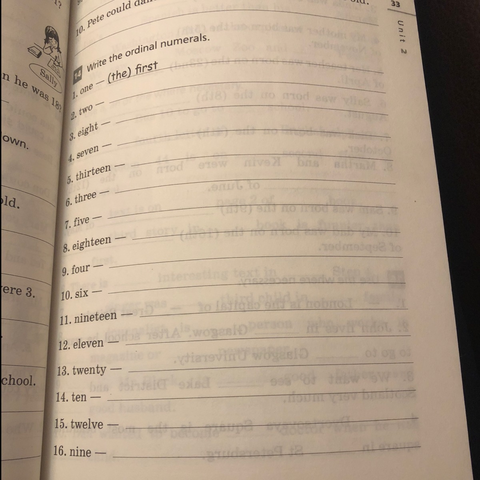 33
Unit 2
10. Pete could
Write the ordinal numerals.
1. one — (the) first
2. two —
3. eight —
4. seven —
5. thirteen —
6. three —
7. five —
8. eighteen —
9. four —
10. six —
11. nineteen —
12. eleven —
13. twenty —
14. ten —
15. twelve —
16. nine —
Sally
n he was 18
own.
old.
ere 3.
chool.